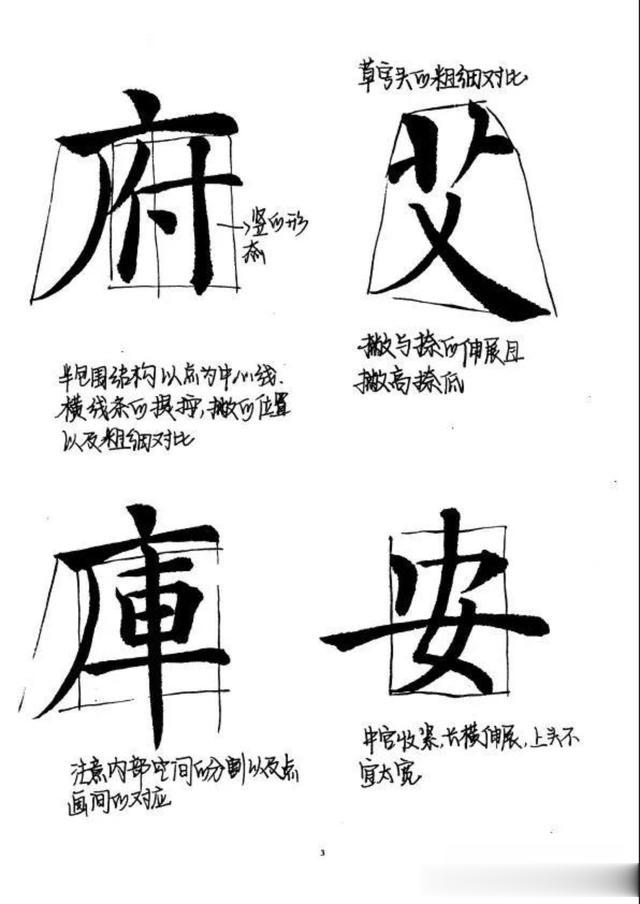 府
→竖的形
态
半包围结构以点为中心线.
横线条的摆按,撇的位置
以及粗细对比
草字头的粗细对比
艾
撇与捺的伸展且
撇高捺低
庫
注意内部空间的分割以及点
画间的对应
安
中宫收紧,长横伸展,上头不
宜太宽
3